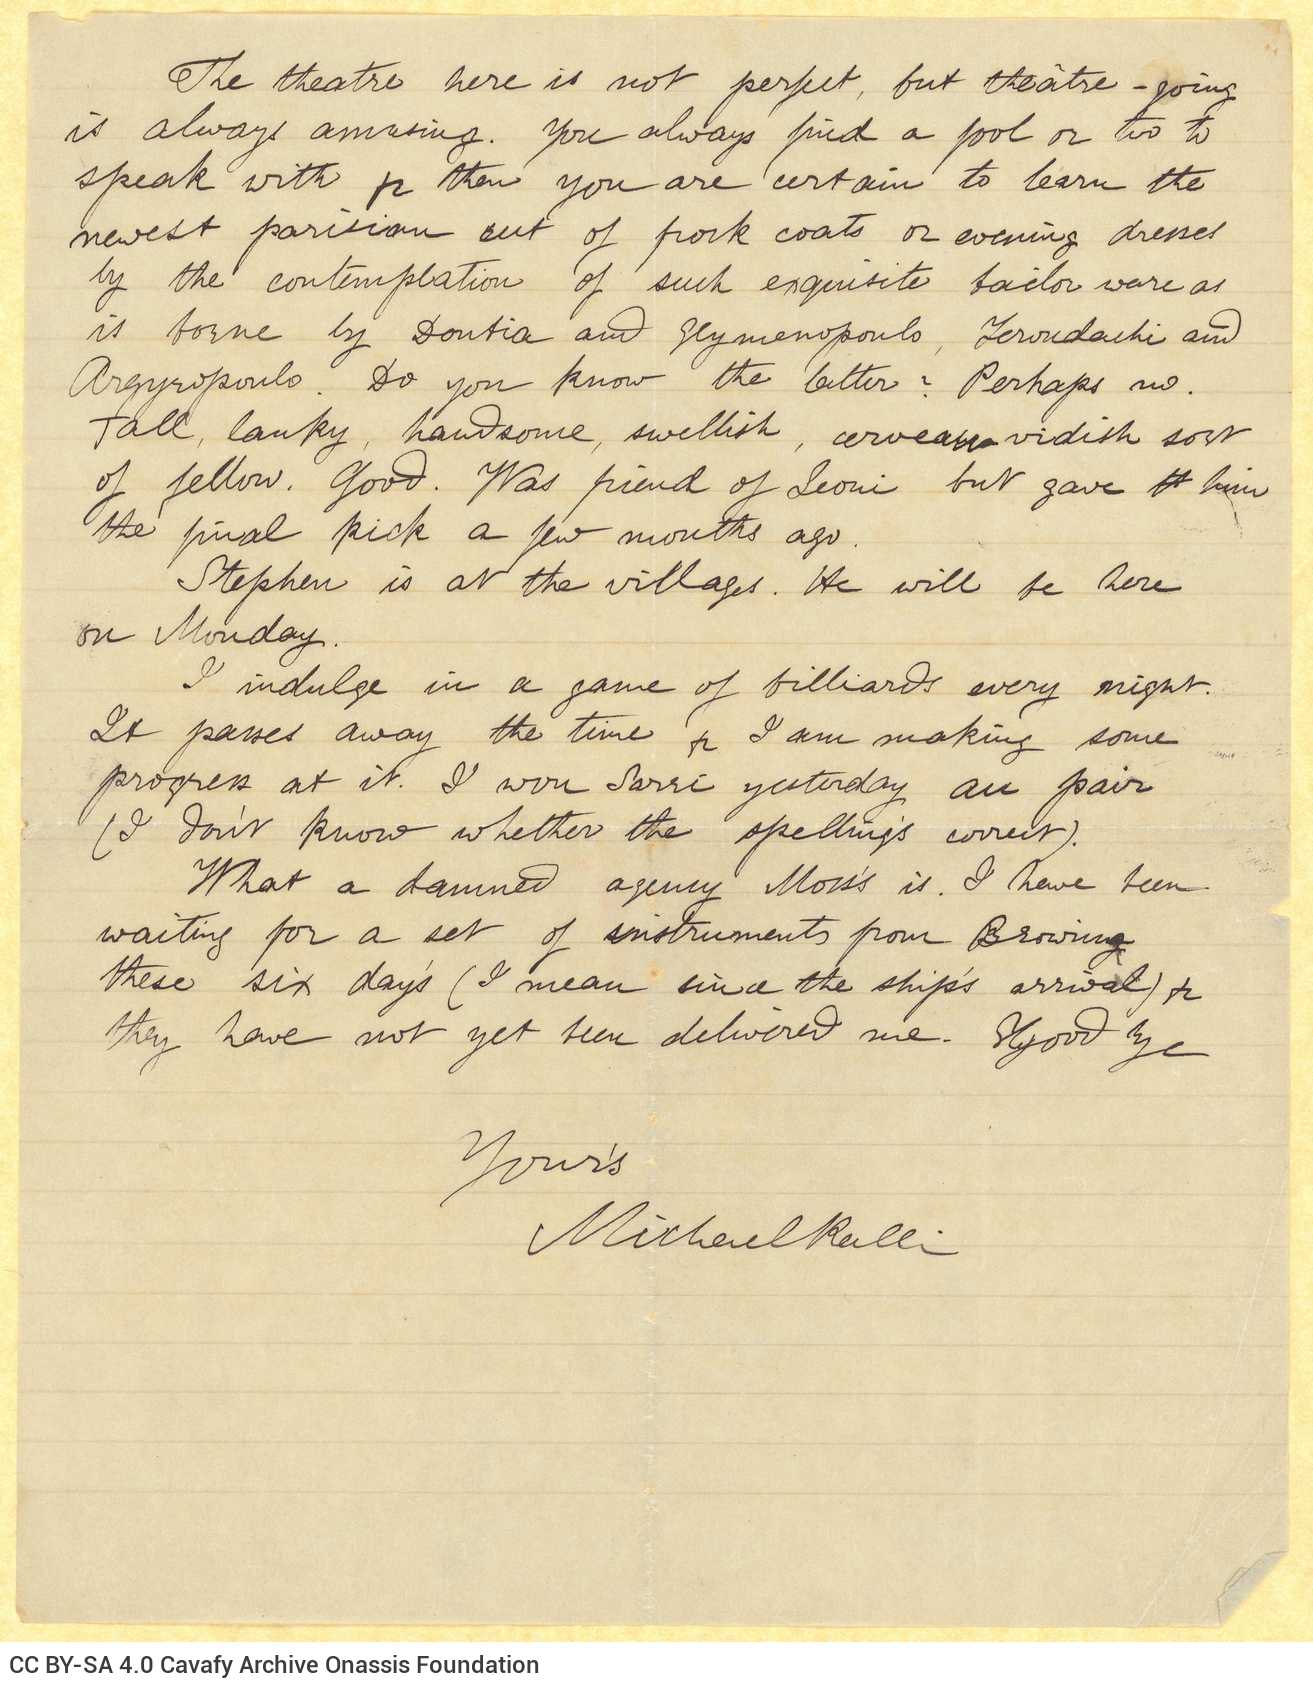 The theatre here is not perfect, but theâtre-going
is always amusing. You always find a fool or two to
speak with & then you are certain to learn the
newest parisian cut of frock coats or evening dresses
by the contemplation of such exquisite tailor ware as
is borne by Dontia and Glymenopoulo, Zeroudachi and
Argyropoulo. Do you know the latter? Perhaps no.
Tall, lanky, handsome, swellish, cerveau vidish sort
of fellow. Good. Was friend of Leoni but gave him
the final kick a few months ago.
Stephen is at the villages. He will be here
on Monday.
I indulge in a game of billiards every night.
It passes away the time & I am making some
progress at it. I won Sarri yesterday au pair
(I don't know whether the spelling's correct).
What a damned agency Moss's is. I have been
waiting for a set of instruments from Browning
these six day's (I mean since the ship's arrival) &
they have not yet been delivered me. Good bye
Your's
Michael Ralli
CC BY-SA 4.0 Cavafy Archive Onassis Foundation